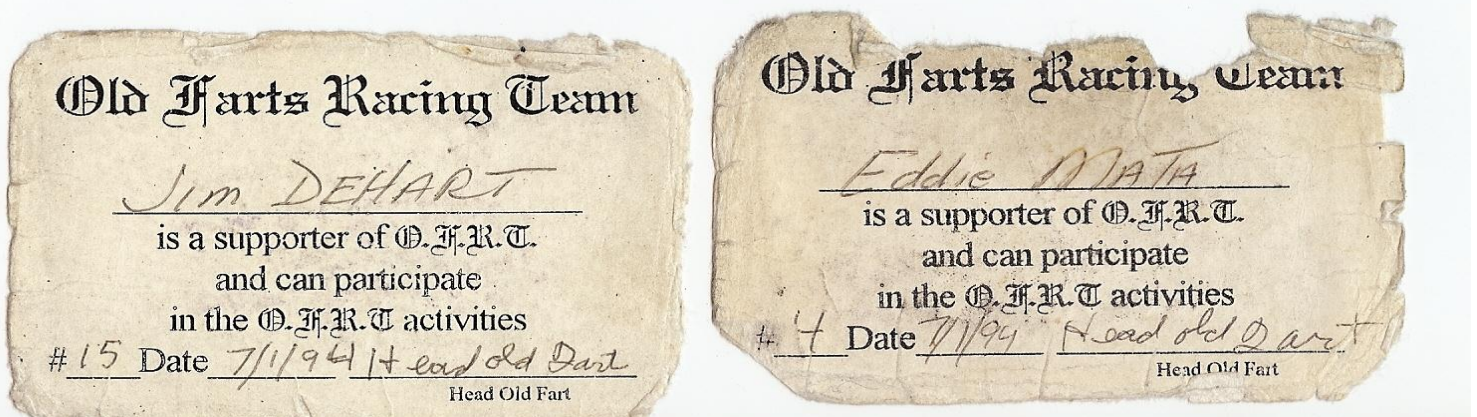 Old Farts Racing Team
Jim DEHART
is a supporter of O.F.R.T.
and can participate
in the O.F.R.T activities
# 15 Date 7/1/94 Head old Fart
Head Old Fart
Old Farts Racing Team
Eddie MATA
is a supporter of O.F.R.T.
and can participate
in the O.F.R.T activities
# 4 Date 7/1/94 Head old Fart
Head Old Fart